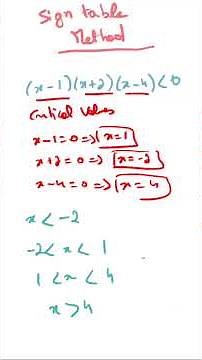 Sign table
Method
(x-1)(x+2)(x-4)<0
Critical values
x-1=0=>x=1
x+2=0=>x=-2
x-4=0=>x=4
x<-2
-2<x<1
1<x<4
x>4